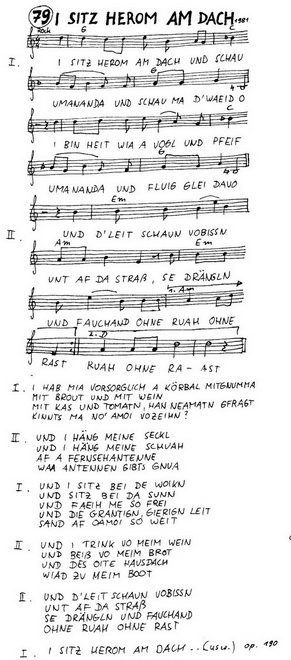 79 I SITZ HEROM AM DACH 1981
Rock G C
I. I SITZ HEROM AM DACH UND SCHAU
G
UMANANDA UND SCHAU MA D'WAEID O
C
I BIN HEIT WIA A VOGL UND PFEIF
G
UMANANDA UND FLUIG GLEI DAVO
Em
II. UND D'LEIT SCHAUN VOBISSN
Am Em
UNT AF DA STRAß, SE DRÄNGLN
1. Am
UND FAUCHAND OHNE RUAH OHNE
2. D
RAST RUAH OHNE RA - AST
I. I HAB MIA VORSORGLICH A KÖRBAL MITGNUMMA
MIT BROUT UND MIT WEIN
MIT KAS UND TOMATN, HAN NEAMATN GFRAGT
KINNTS MA NO' AMOI VOZEIHN?
II. UND I HÄNG MEINE SECKL
UND I HÄNG MEINE SCHUAH
AF A FERNSEHANTENNE
WAA ANTENNEN GIBTS GNUA
I. UND I SITZ BEI DE WOIKN
UND SITZ BEI DA SUNN
UND FAEIH ME SO FREI
UND DIE GRANTIGN, GIERIGN LEIT
SAND AF OAMOI SO WEIT
II. UND I TRINK VO MEIM WEIN
UND BEIß VO MEIM BROT
UND DES OITE HAUSDACH
WIAD ZU MEIM BOOT
II. UND D'LEIT SCHAUN VOBISSN
UNT AF DA STRAß
SE DRÄNGLN UND FAUCHAND
OHNE RUAH OHNE RAST
I. I SITZ HEROM AM DACH .. (usw.) op. 190